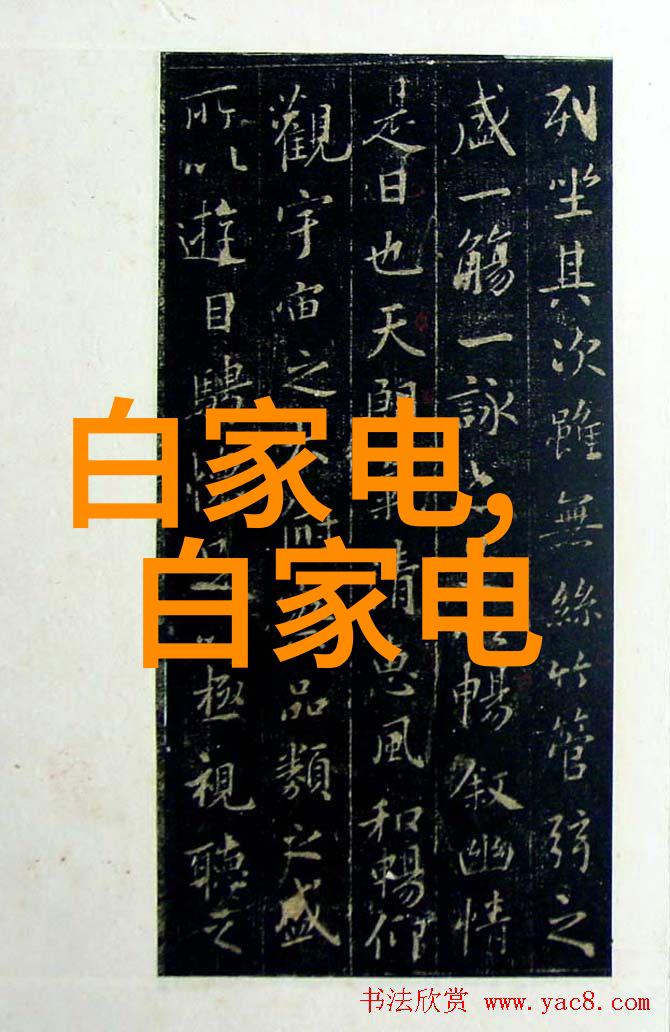 列坐其次雖無絲竹管弦之
盛一觴一詠暢叙幽情
是日也天惠風和暢仰
觀宇宙之品類之盛
所以遊目騁極視聽之
白家电,
白家电
书法欣赏 www.yac8.com